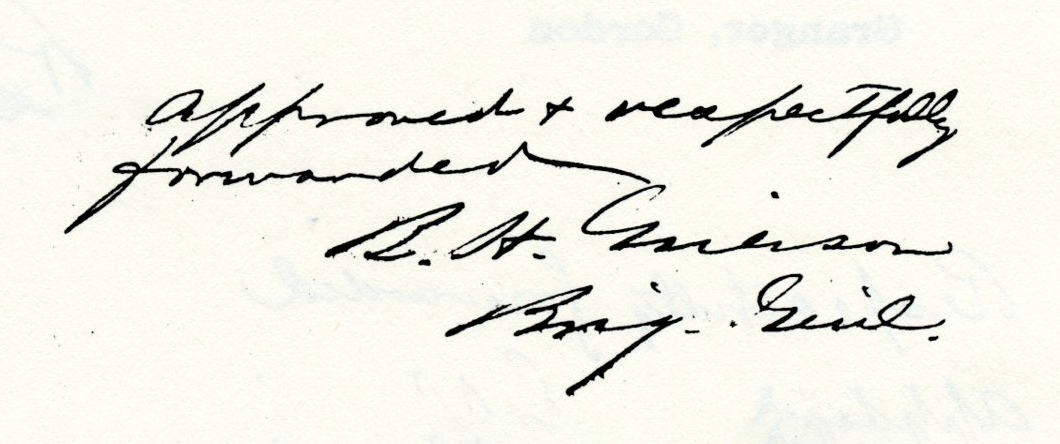 Approved & respectfully
forwarded
B. H. Grierson
Brig. Genl.
Granger, Gordon